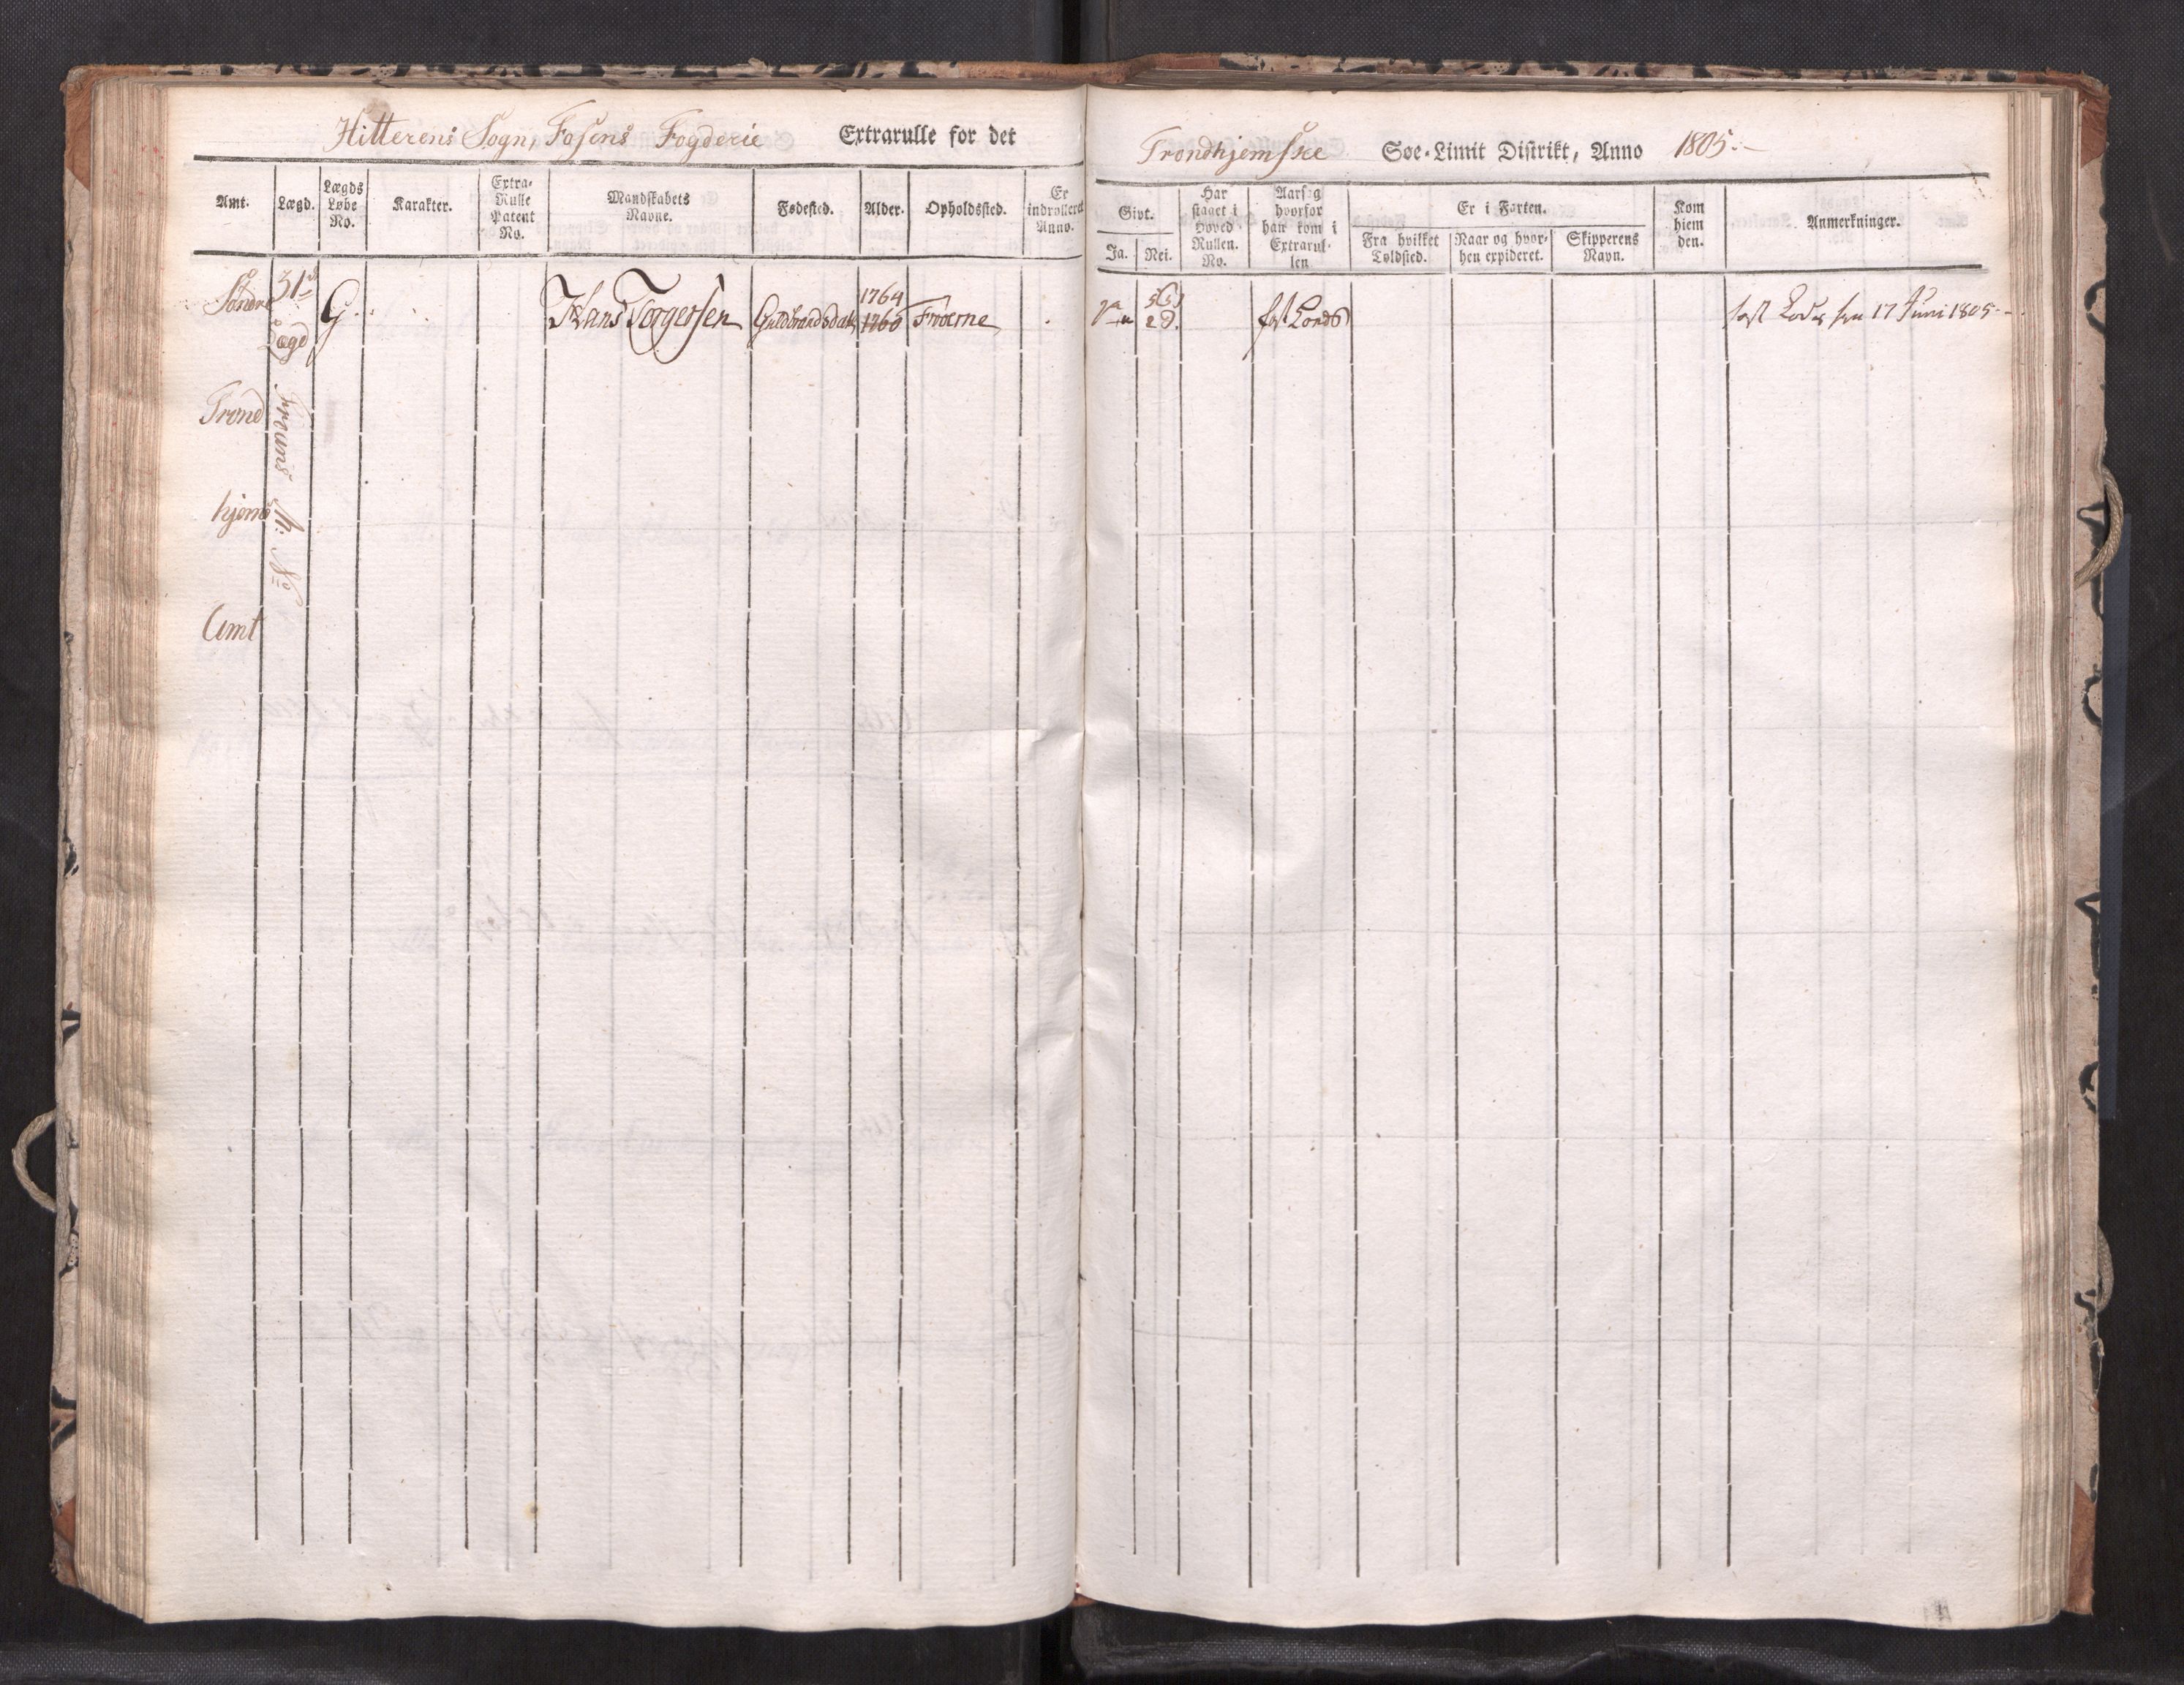 Hitterens Sogn, Fosens Fogderie Extrarulle for det
Amt.
Lægd.
Lægds
Løbe
No.
Karakter.
Extra-
Rulle
Patent
No.
Mandskabets
Navne.
Fødested.
Alder.
Opholdssted.
Er
indrolleret
Anno.
Søndre
31te
Lægd
G.
Hans Torgersen
Guldbrandsdal
1764
1760
Froerne
Trond
hjems
Amt
No
Trondhjemske Søe-Limit Distrikt, Anno 1805.
Givt.
Ja.
Nei.
Har
staaet i
Hoved
Rullen.
No.
Aarsag
hvorfor
han kom i
Extrarul-
len
Er i Farten.
Fra hvilket
Toldsted.
Naar og hvor-
hen expideret.
Skipperens
Navn.
Kom
hiem
den.
Anmerkninger.
fast Loeds
fast Lods 17 Juni 1805